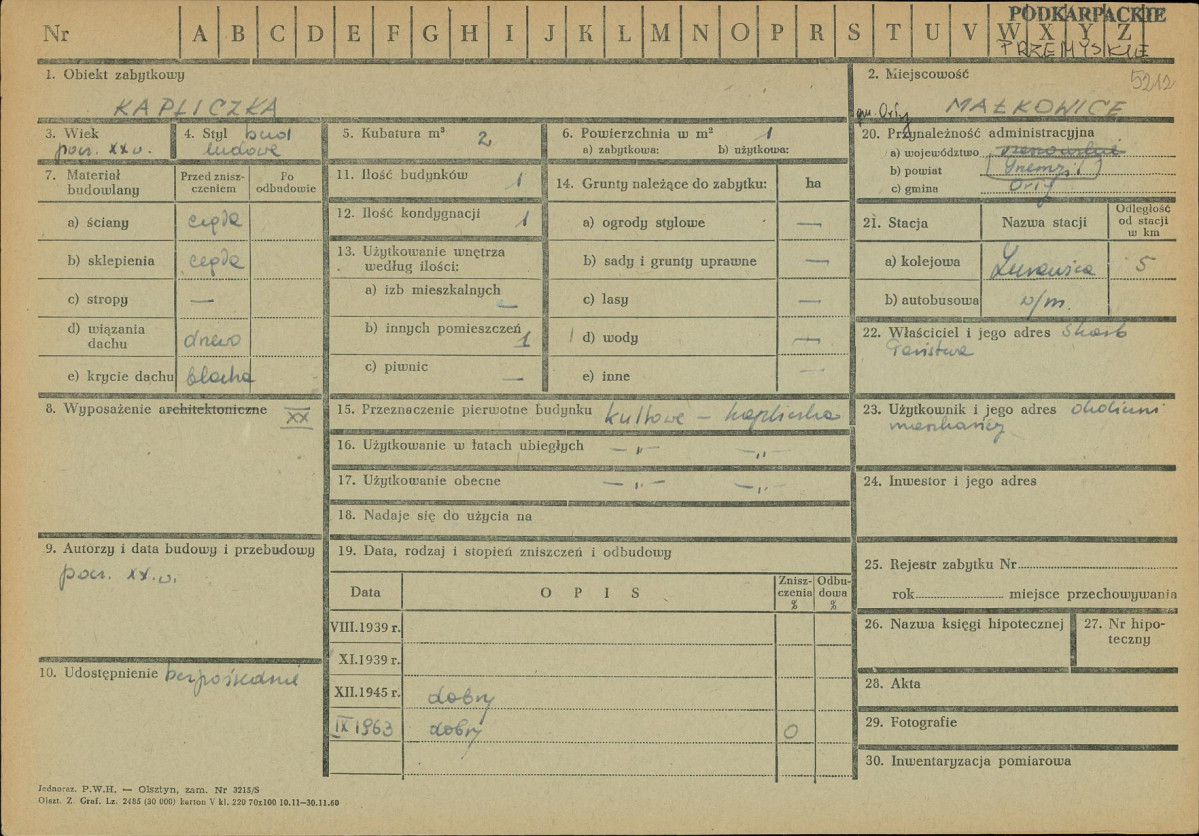 PODKARPACKIE
Nr A B C D E F G H I J K L M N O P R S T U V W X Y Z
PRZEMYSKIE
1. Obiekt zabytkowy
KAPLICZKA
2. Miejscowość
5212
gm. Orły MAŁKOWICE
3. Wiek
pocz. XX w.
4. Styl bud
ludowe
5. Kubatura m³
2
6. Powierzchnia w m² 1
a) zabytkowa: b) użytkowa:
20. Przynależność administracyjna
a) województwo rzeszowskie
b) powiat Przemyśl
c) gmina Orły
7. Materiał budowlany
Przed zniszczeniem
Po odbudowie
a) ściany cegła
b) sklepienia cegła
c) stropy —
d) wiązania dachu drewo
e) krycie dachu blacha
11. Ilość budynków 1
12. Ilość kondygnacji 1
13. Użytkowanie wnętrza
według ilości:
a) izb mieszkalnych —
b) innych pomieszczeń 1
c) piwnic —
14. Grunty należące do zabytku: ha
a) ogrody stylowe —
b) sady i grunty uprawne —
c) lasy —
d) wody —
e) inne —
21. Stacja
Nazwa stacji
Odległość
od stacji
w km
a) kolejowa Żurawica 5
b) autobusowa w/m.
22. Właściciel i jego adres Skarb
Państwa
8. Wyposażenie architektoniczne XX
15. Przeznaczenie pierwotne budynku kultowe – kapliczka
16. Użytkowanie w łatach ubiegłych —„— —„—
17. Użytkowanie obecne —„— —„—
18. Nadaje się do użycia na
23. Użytkownik i jego adres okoliczni
mieszkańcy
24. Inwestor i jego adres
9. Autorzy i data budowy i przebudowy
pocz. XX. w.
19. Data, rodzaj i stopień zniszczeń i odbudowy
Data
O P I S
Znisz-
czenia
%
Odbu-
dowa
%
VIII.1939 r.
XI.1939 r.
XII.1945 r. dobry
IX 1963 dobry 0
25. Rejestr zabytku Nr
rok miejsce przechowywania
26. Nazwa księgi hipotecznej
27. Nr hipo-
teczny
10. Udostępnienie bezpośrednie
28. Akta
29. Fotografie
30. Inwentaryzacja pomiarowa
Jednoraz. P.W.H. — Olsztyn, zam. Nr 3215/S
Olszt. Z. Graf. Lz. 2485 (30 000) karton V kl. 220 70x100 10.11—30.11.60